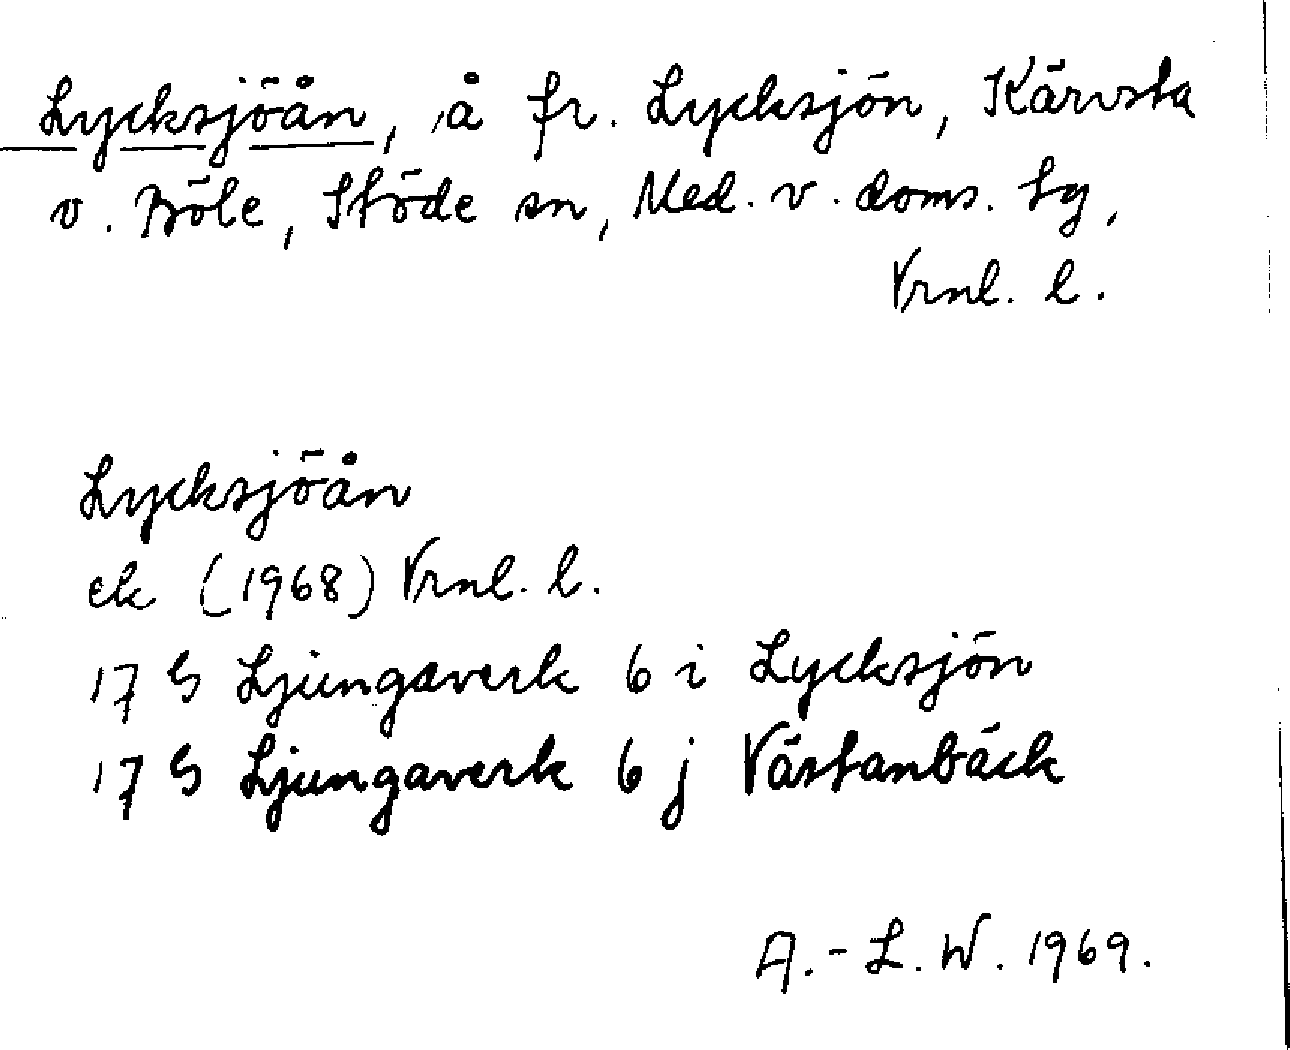 Lycksjöån, å fr. Lycksjön, Kärvsta
v. Böle, Stöde sn, Med. v. doms. tg,
Vrnl. l.
Lycksjöån
ek (1968) Vrnl. l.
17 G Ljungaverk 6 i Lycksjön
17 G Ljungaverk 6 j Västanbäck
A.-L. W. 1969.